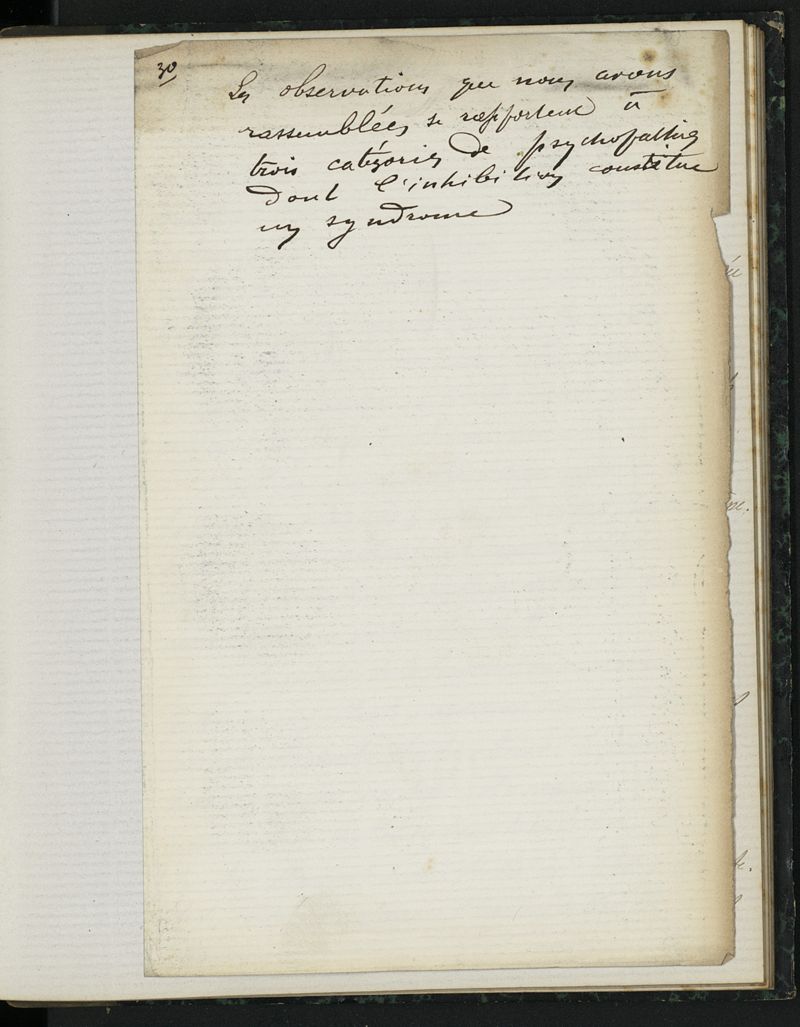 30
Les observations que nous avons
rassemblées se rapportent à
trois catégories de psychopathies
dont l'inhibition constitue
un syndrome